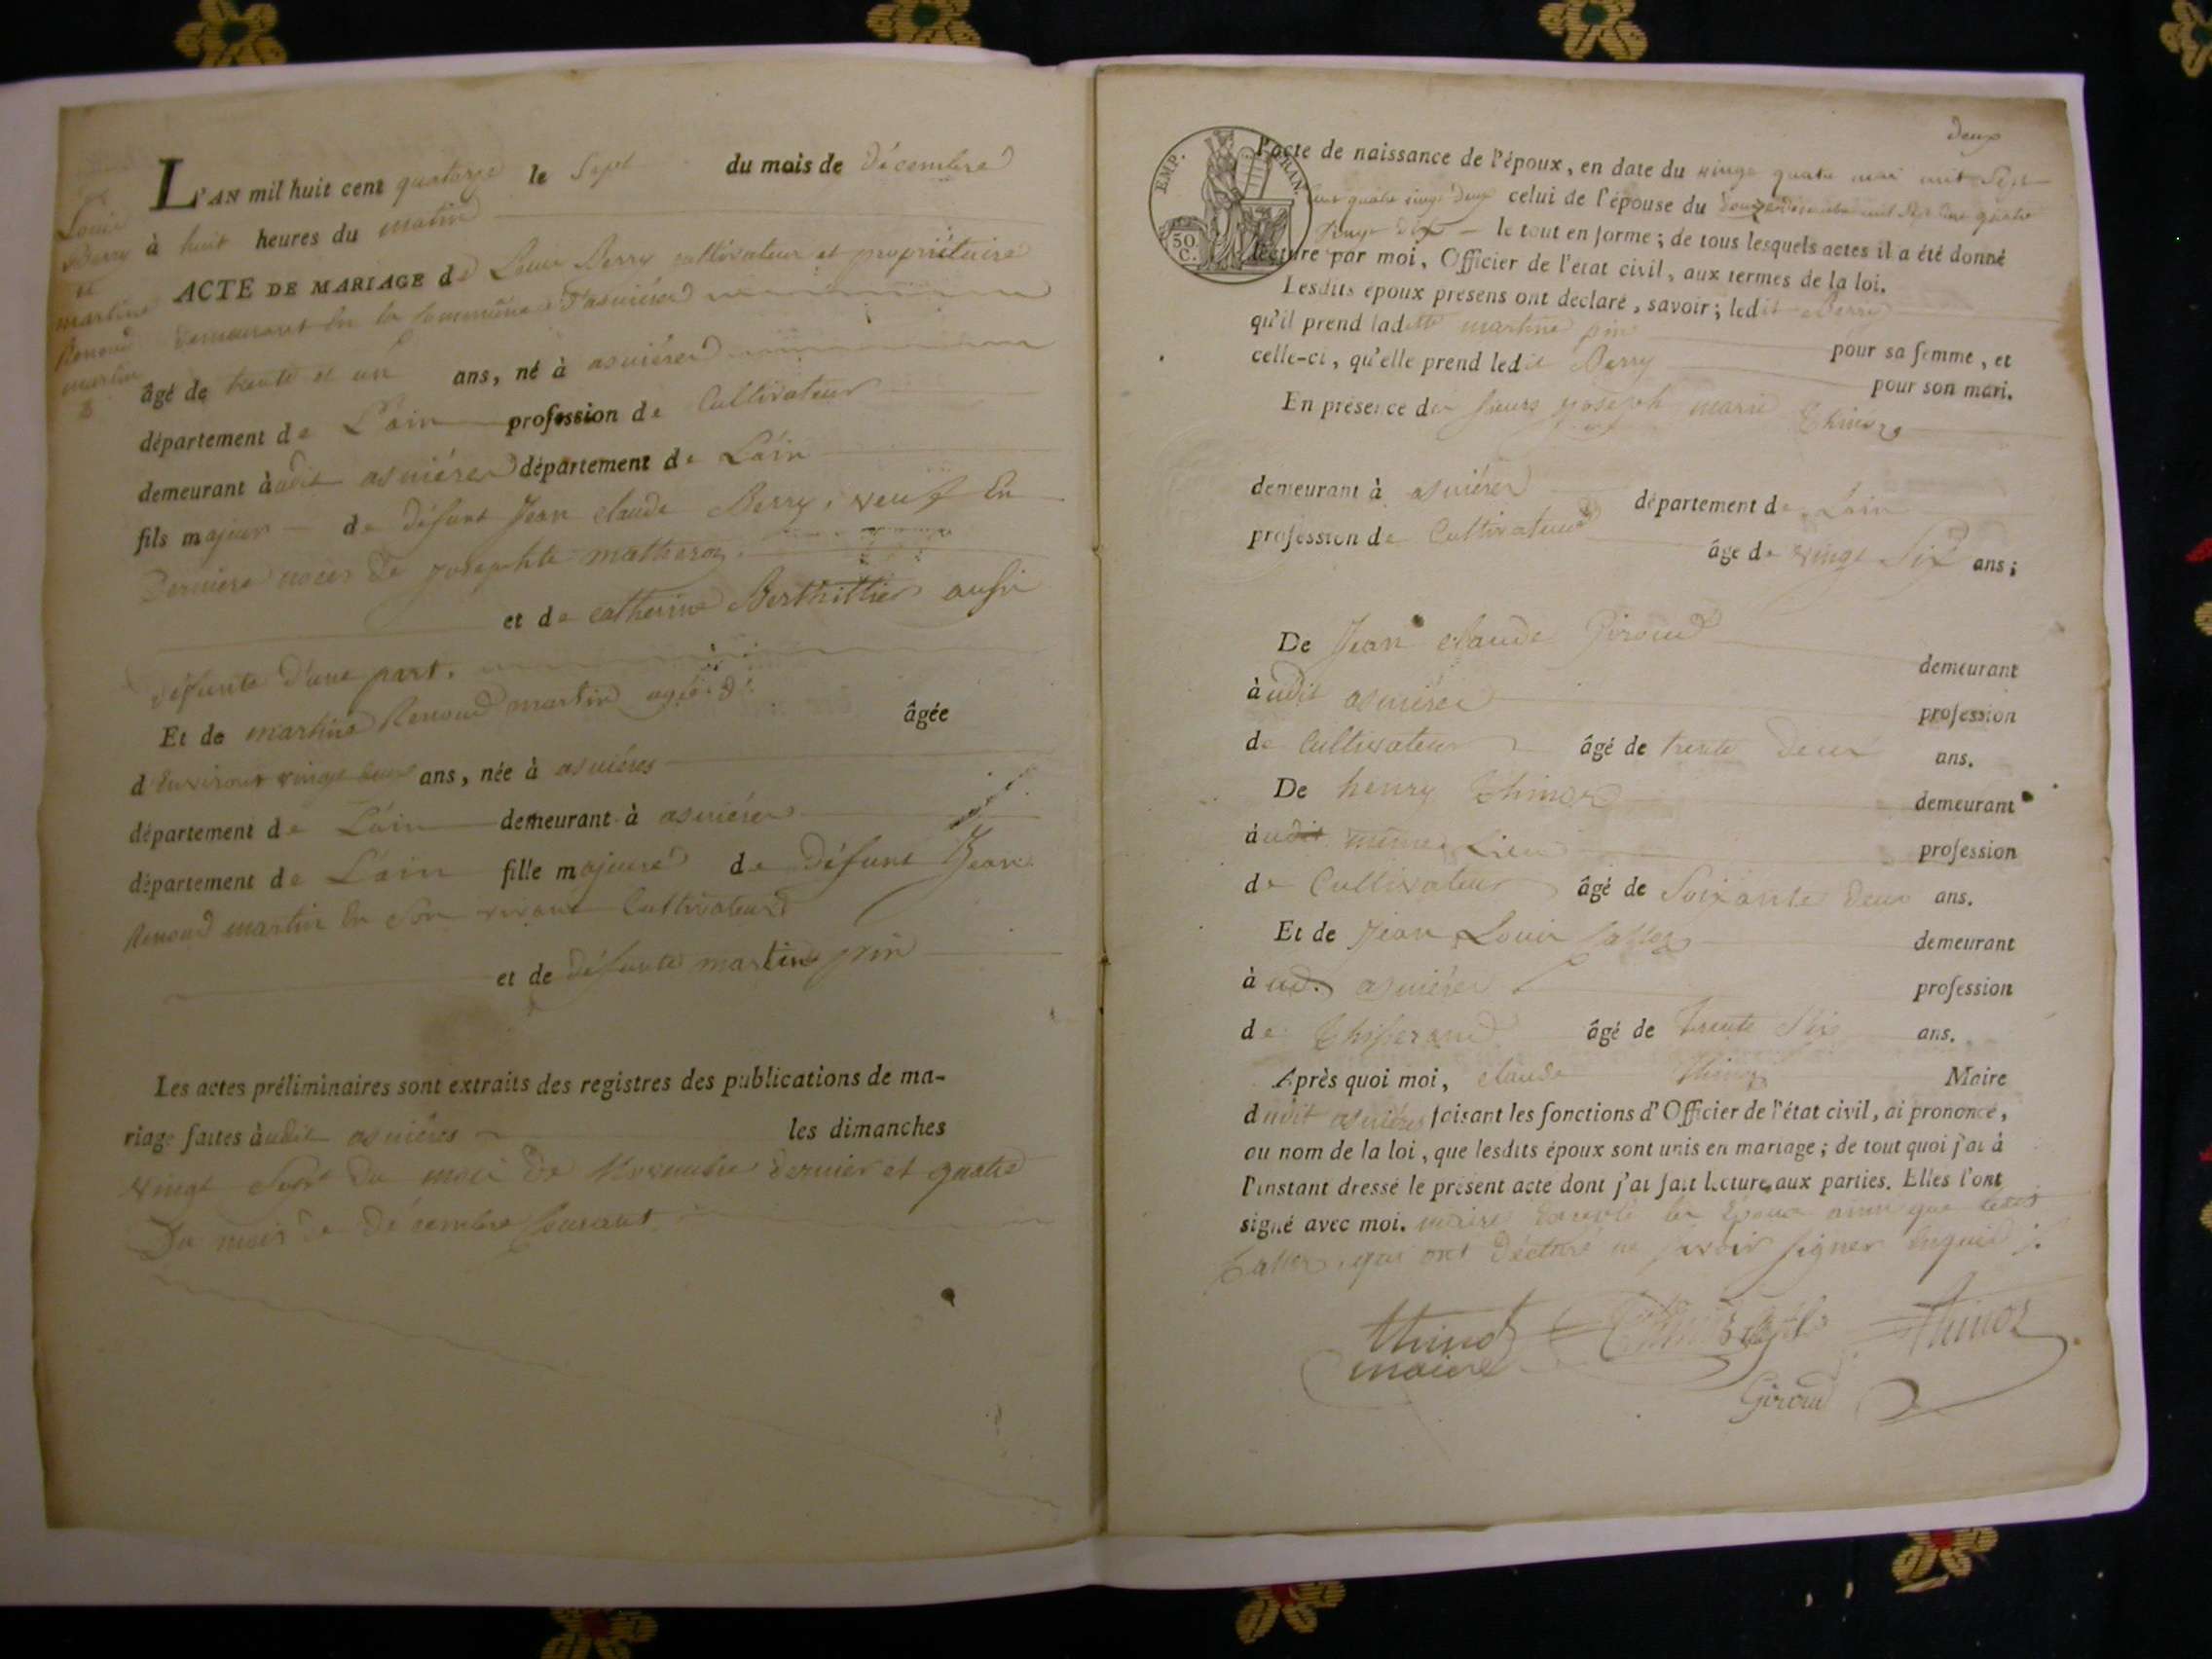 Louis
Berry
et
martine
Renoud
martin
L'AN mil huit cent quatorze le Sept du mois de décembre
à huit heures du matin
ACTE DE MARIAGE de Louis Berry cultivateur et propriétaire
demeurant en la commune d'asniéres
âgé de trente et un ans, né à asniéres
département de L'ain profession de Cultivateur
demeurant àudit asniéres département de L'ain
fils majeur de défunt Jean claude Berry, veuf En
Derniere noces de josephte matheron
et de catherine Berthillier aussi
défunte d'une part.
Et de martine Renoud martin agée d'
âgée
d'Environt vingt ans, née à asniéres
département de L'ain demeurant à asniéres
département de L'ain fille majeure de défunt Jean
Renoud martin En Son vivant Cultivateur
et de défunte martine pin
Les actes préliminaires sont extraits des registres des publications de ma-
riage faites àudit asniéres les dimanches
vingt Sept du mois de Novembre dernier et quatre
Du mois de décembre Courant
deux
EMP. FRAN.
50 C.
l'acte de naissance de l'époux, en date du vingt quatre mai mil Sept
Cent quatre vingt deux celui de l'épouse du douze décembre mil Sept Cent quatre
vingt dix le tout en forme; de tous lesquels actes il a été donné
lecture par moi, Officier de l'etat civil, aux termes de la loi.
Lesdits époux présens ont déclaré, savoir; ledit Berry
qu'il prend ladite martine pin pour sa femme, et
celle-ci, qu'elle prend ledit Berry pour son mari.
En présence des sieurs joseph marie Thinoz
demeurant à asniéres département de Lain
profession de Cultivateur âgé de vingt Six ans;
De Jean claude Giroud demeurant
àudit asniéres profession
de Cultivateur âgé de trente deux ans.
De henry Thinoz demeurant
àudit même Lieu profession
de Cultivateur âgé de Soixante deux ans.
Et de Jean Louis demeurant
à ud. asniéres profession
de Thisserand âgé de Trente Six ans.
Après quoi moi, claude Thinoz Maire
dudit asniéres faisant les fonctions d'Officier de l'état civil, ai prononcé,
au nom de la loi, que lesdits époux sont unis en mariage; de tout quoi j'ai à
l'instant dressé le présent acte dont j'ai fait lecture aux parties. Elles l'ont
signé avec moi. maire Excepté les Epoux ainsi que ledit
qui ont Déclaré ne savoir signer Enquis
thinoz
maire
thinoz
Giroud